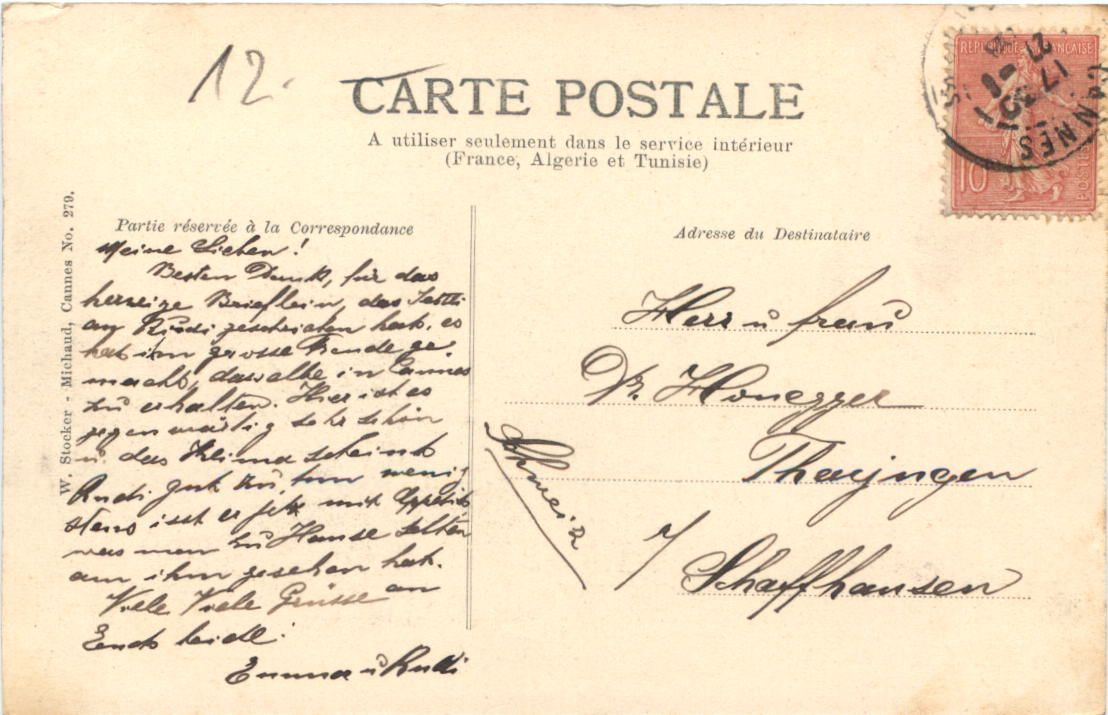 12.
CARTE POSTALE
A utiliser seulement dans le service intérieur
(France, Algerie et Tunisie)
RÉPUBLIQUE FRANÇAISE
10
POSTES
CANNES
17
W. Stocker - Michaud, Cannes No. 279.
Partie réservée à la Correspondance
Meine Lieben!
Besten Dank, für das
herzige Brieflein, das
an Rudi geschrieben hat. es
hat ihm grosse Freude ge-
macht, dasselbe in Cannes
zu erhalten. Hier ist es
gegenwärtig sehr schön
u. das Klima scheint
Rudi gut zu tun wenig
stens isst er jetzt mit Appetit
was man zu Hause selten
an ihm gesehen hat.
Viele Viele Grüsse an
Euch beide!
Emma u Rudi
Adresse du Destinataire
Herr u Frau
Dr. Honegger
Thayngen
Schweiz
Schaffhausen